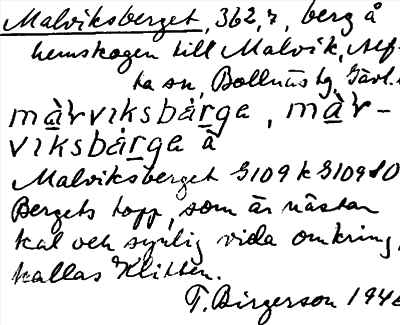 Malviksberget, 362,7, berg å
hemskogen till Malvik, Alf-
ta sn, Bollnäs tg, Gävl.
màrviksbärga, màr-
viksbärga å
Malviksberget G109 k G109 SO
Bergets topp, som är nästan
kal och synlig vida omkring,
kallas Klitten.
T. Birgerson 194